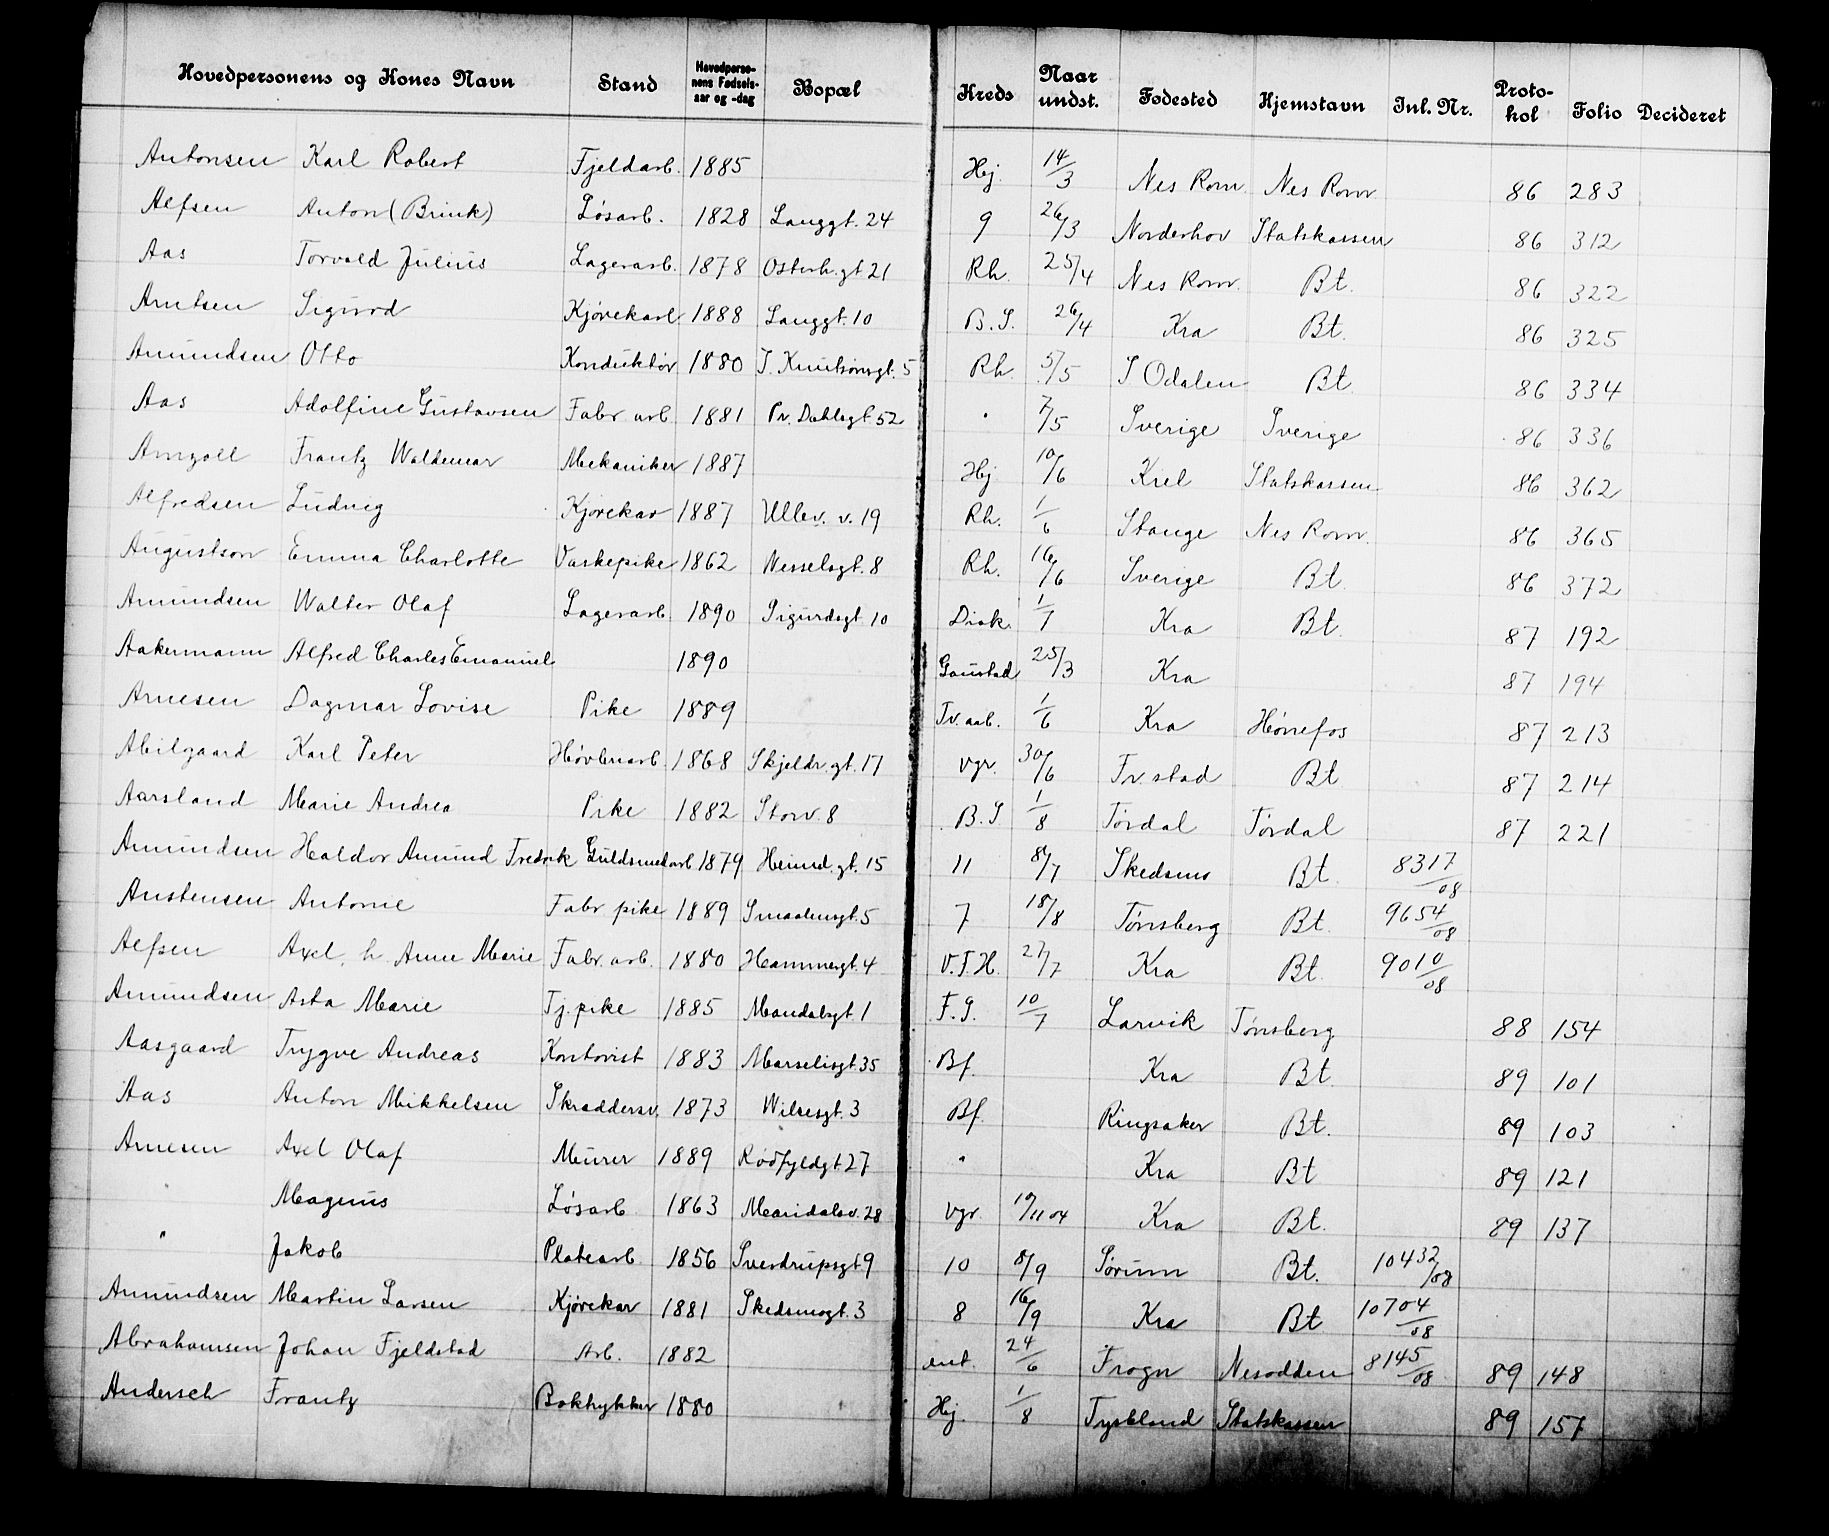 Hovedpersonens og Kones Navn Stand Hovedpersonens Fødselsaar og -dag Bopæl Kreds Naar undst. Fødested Hjemstavn Inl. Nr. Protokol Folio Decideret
Antonsen Karl Robert Fjeldarb. 1885 Hej. 14/3 Nes Rom. Nes Rom. 86 283
Alfsen Anton (Brink) Løsarb. 1828 Langgt. 24 9 26/3 Norderhov Statskassen 86 312
Aas Torvald Julius Lagerarb. 1878 Osterh.gt 21 Rh. 25/4 Nes Rom. Bt. 86 322
Arntsen Sigurd Kjørekarl 1888 Langgt. 10 B.S. 26/4 Kra Bt. 86 325
Amundsen Otto Konduktør 1880 T. Knutsonsgt. 5 Rh. 5/5 S Odalen Bt. 86 334
Aas Adolfine Gustavsen Fabr arb 1881 Pr. Dahlsgt 52 " 7/5 Sverige Sverige 86 336
Arngoll Frantz Waldemar Mekaniker 1887 Hej 10/6 Kiel Statskassen 86 362
Alfredsen Ludvig Kjørekar 1887 Ullev. v. 19 Rh. 1/6 Stange Nes Rom. 86 365
Augustson Emma Charlotte Vaskepike 1862 Nesselsgt. 8 Rh. 16/6 Sverige Bt. 86 372
Amundsen Walter Olaf Lagerarb 1890 Sigurdsgt 10 Diak. 1/7 Kra Bt. 87 192
Aakermann Alfred Charles Emanuel 1890 Gaustad 25/3 Kra 87 194
Arnesen Dagmar Lovise Pike 1889 Tv. aab. 1/6 Kra Hønefos 87 213
Abilgaard Karl Peter Høvleriarb. 1868 Skjeldr.gt. 17 Vgr. 30/6 Fr.stad Bt 87 214
Aarsland Marie Andrea Pike 1882 Storv. 8 B.S 1/8 Tørdal Tørdal 87 221
Amundsen Haldor Amund Fredrik Guldsmedarb 1879 Heimd.gt. 15 11 8/7 Skedsmo Bt. 8317/08
Austensen Antonie Fabr pike 1889 Smaalensgt. 5 7 18/8 Tønsberg Bt. 9654/08
Alfsen Axel, h. Anne Marie Fabr. arb. 1880 Hammergt. 4 V.F.H. 27/7 Kra Bt. 9010/08
Amundsen Asta Marie Tj. pike 1885 Mandalsgt. 1 F.G. 10/7 Larvik Tønsberg 88 154
Aasgaard Trygve Andreas Kontorist 1883 Marselisgt. 35 Bf. Kra Bt. 89 101
Aas Anton Mikkelsen Skræddersv. 1873 Wilsesgt. 3 Bf. Ringsaker Bt. 89 103
Arnesen Axel Olaf Murer 1889 Rødfyldgt 27 " Kra Bt 89 121
" Magnus Løsarb. 1863 Maridalsv. 28 Vgr. 19/11 04 Kra Bt. 89 137
" Jakob Platearb. 1856 Sverdrupsgt 9 10 8/9 Sørum Bt. 10432/08
Amundsen Martin Larsen Kjørekar 1881 Skedsmogt. 3 8 16/9 Kra Bt 10704/08
Abrahamsen Johan Fjeldstad Arb. 1882 ant. 24/6 Frogn Nesodden 8145/08 89 148
Andersch Frantz Boktrykker 1880 Hej. 1/8 Tyskland Statskassen 89 157